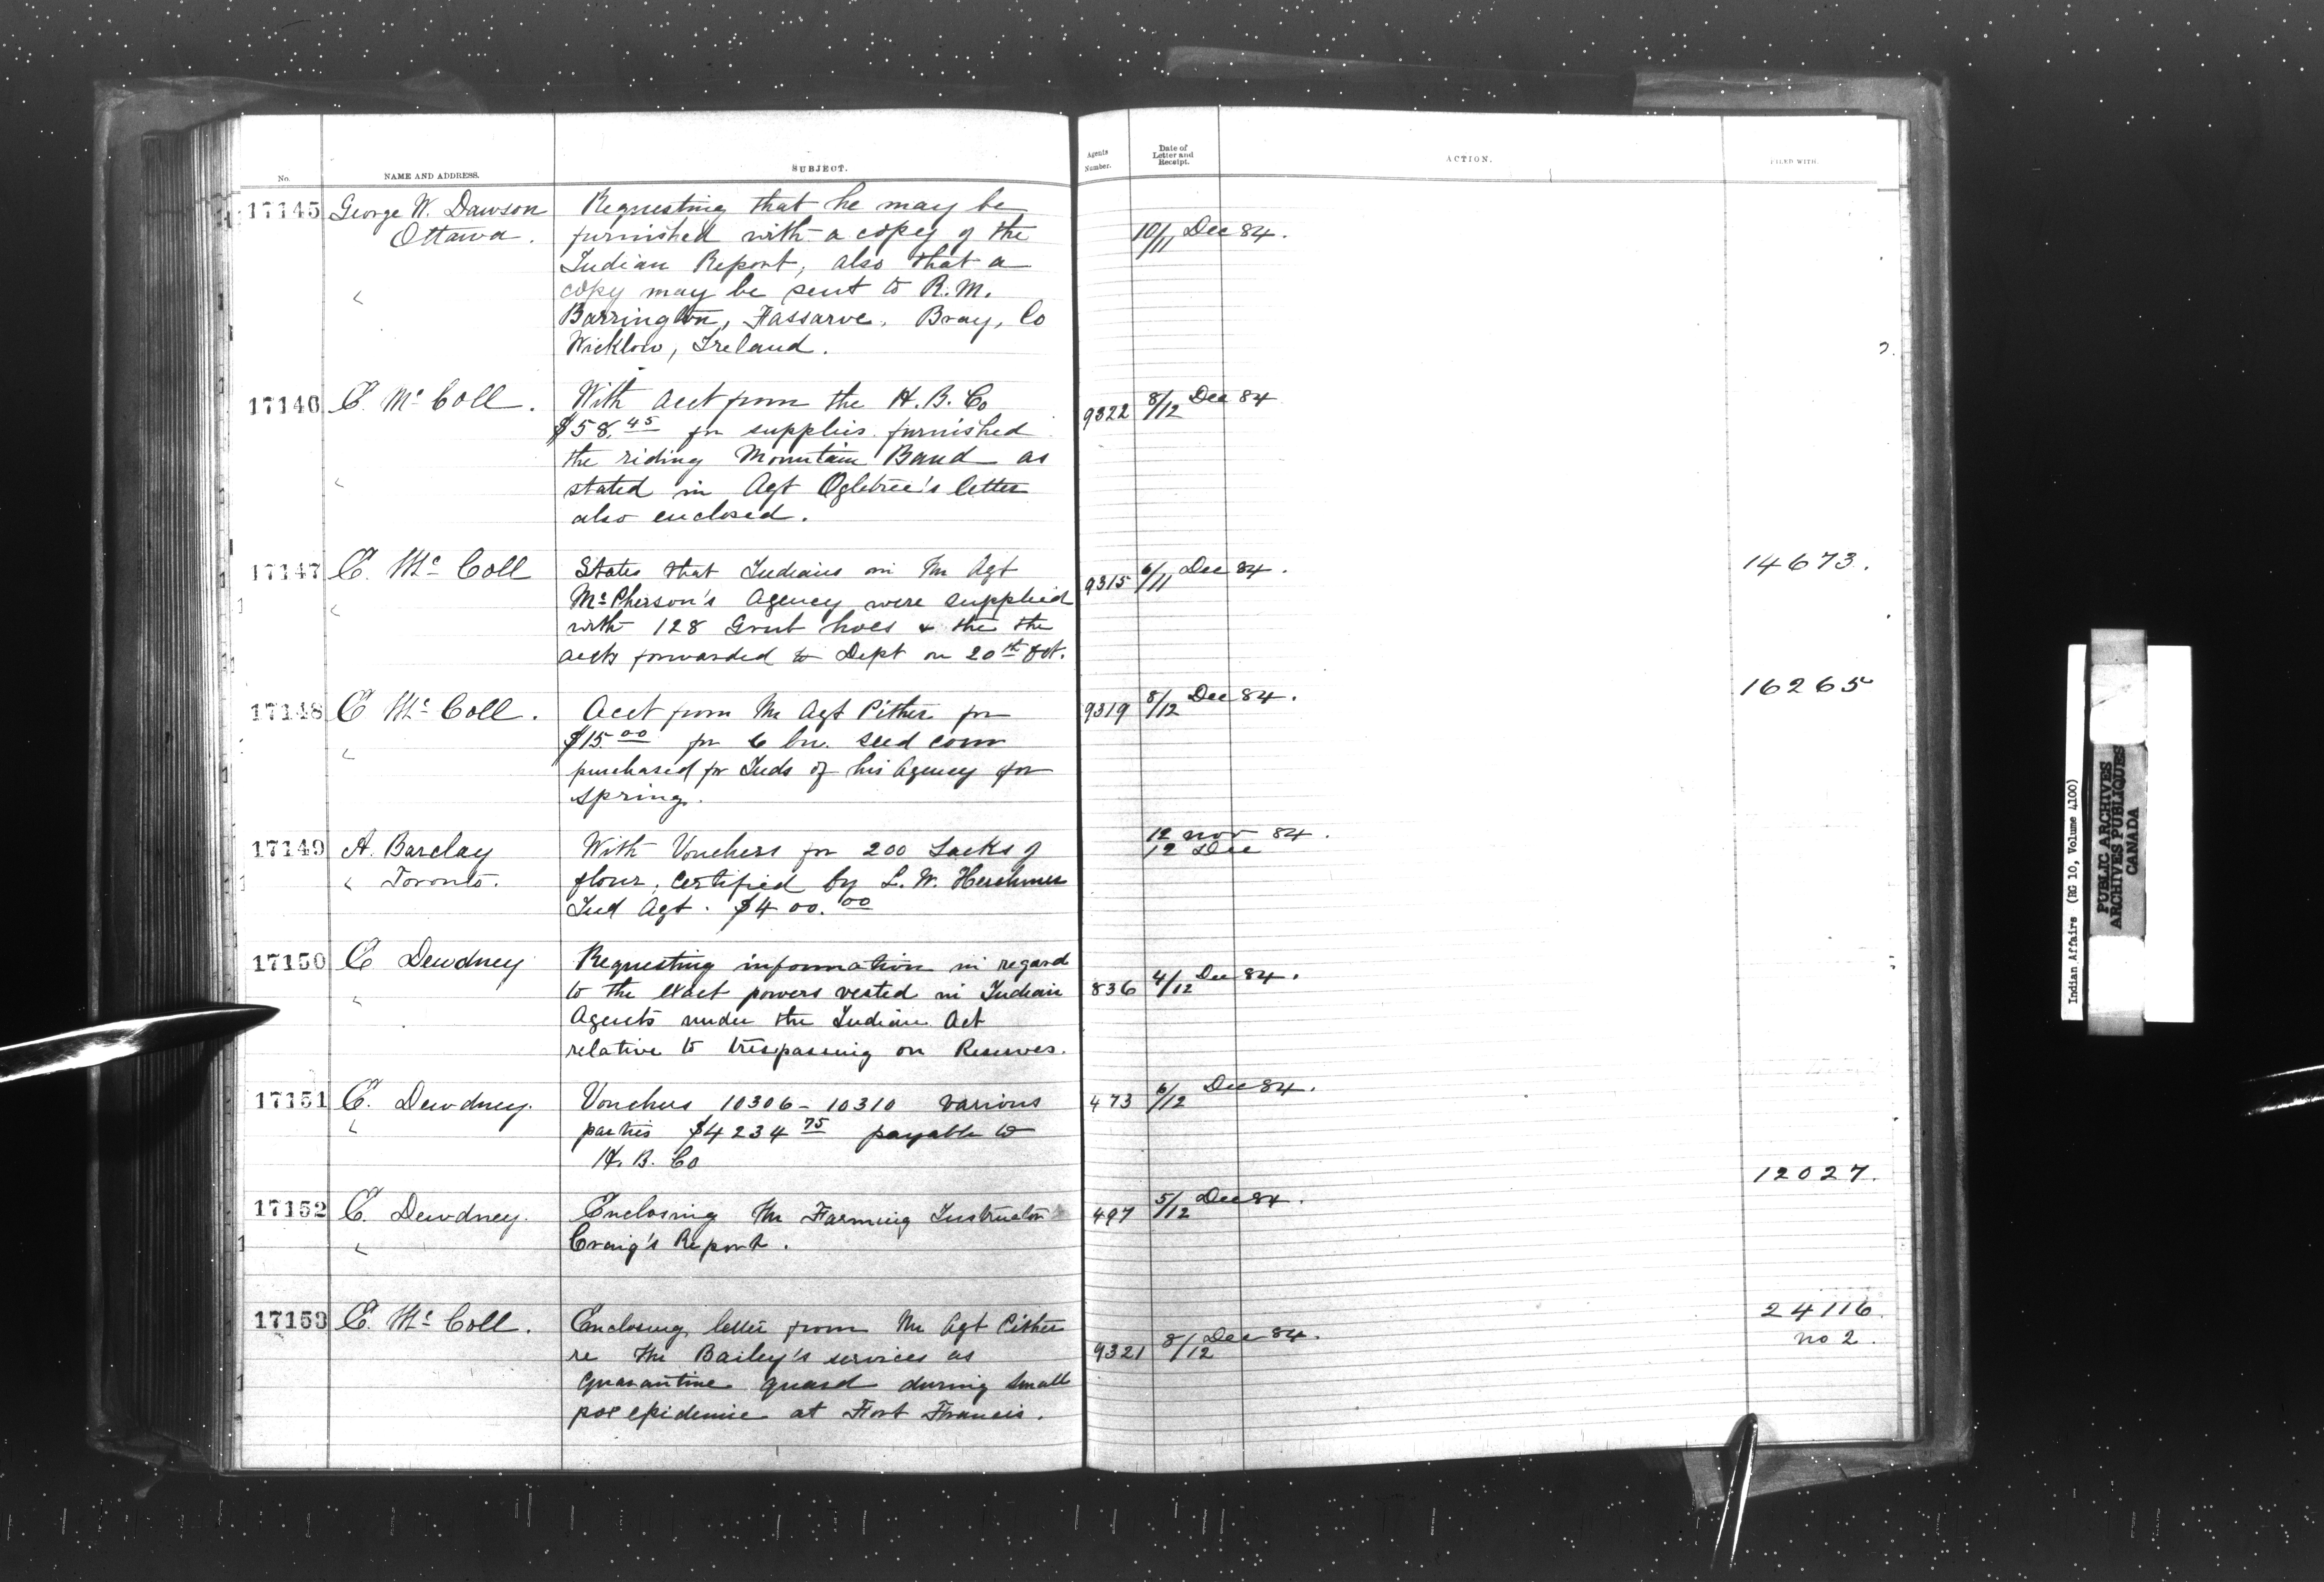 No.
NAME AND ADDRESS.
SUBJECT.
Agents
Number.
Date of
Letter and
Receipt.
ACTION.
FILED WITH.
17145 George W. Dawson
Ottawa.
Requesting that he may be
furnished with a copy of the
Indian Report, also that a
copy may be sent to R.M.
Barrington, Fassaroe, Bray, Co
Wicklow, Ireland.
10/11 Dec 84.
17146 E. McColl.
With Acct from the H.B. Co
$58.45 for supplies furnished
the riding Mountain Band as
stated in Agt Ogletree's letter
also enclosed.
9322 8/12 Dec 84
17147 E. McColl
States that Indians in Mr Agt
McPherson's Agency were supplied
with 128 Grub hoes & the the
accts forwarded to Dept on 20th Oct.
9315 6/11 Dec 84.
14673.
17148 E McColl.
Acct from Mr Agt Pither for
$15.00 for 6 bu. seed corn
purchased for Inds of his Agency for
spring.
9319 8/12 Dec 84.
16265
17149 A. Barclay
Toronto.
With Vouchers for 200 Sacks of
flour, certified by L.W. Herchmer
Ind Agt. $400.00
12 Nov 84.
12 Dec
17150 E Dewdney
Requesting information in regard
to the exact powers vested in Indian
Agents under the Indian Act
relative to trespassing on Reserves.
836 4/12 Dec 84.
17151 E. Dewdney.
Vouchers 10306-10310 various
parties $4234.75 payable to
H.B. Co
473 6/12 Dec 84.
17152 E. Dewdney.
Enclosing Mr Farming Instructor
Craig's Report.
497 5/12 Dec 84.
12027.
17153 E. McColl.
Enclosing letter from Mr Agt Pither
re Mr Bailey's services as
quarantine guard during small
pox epidemic at Fort Francis.
9321 8/12 Dec 84.
24116.
No 2.
Indian Affairs (RG 10, Volume 4100)
PUBLIC ARCHIVES
ARCHIVES PUBLIQUES
CANADA